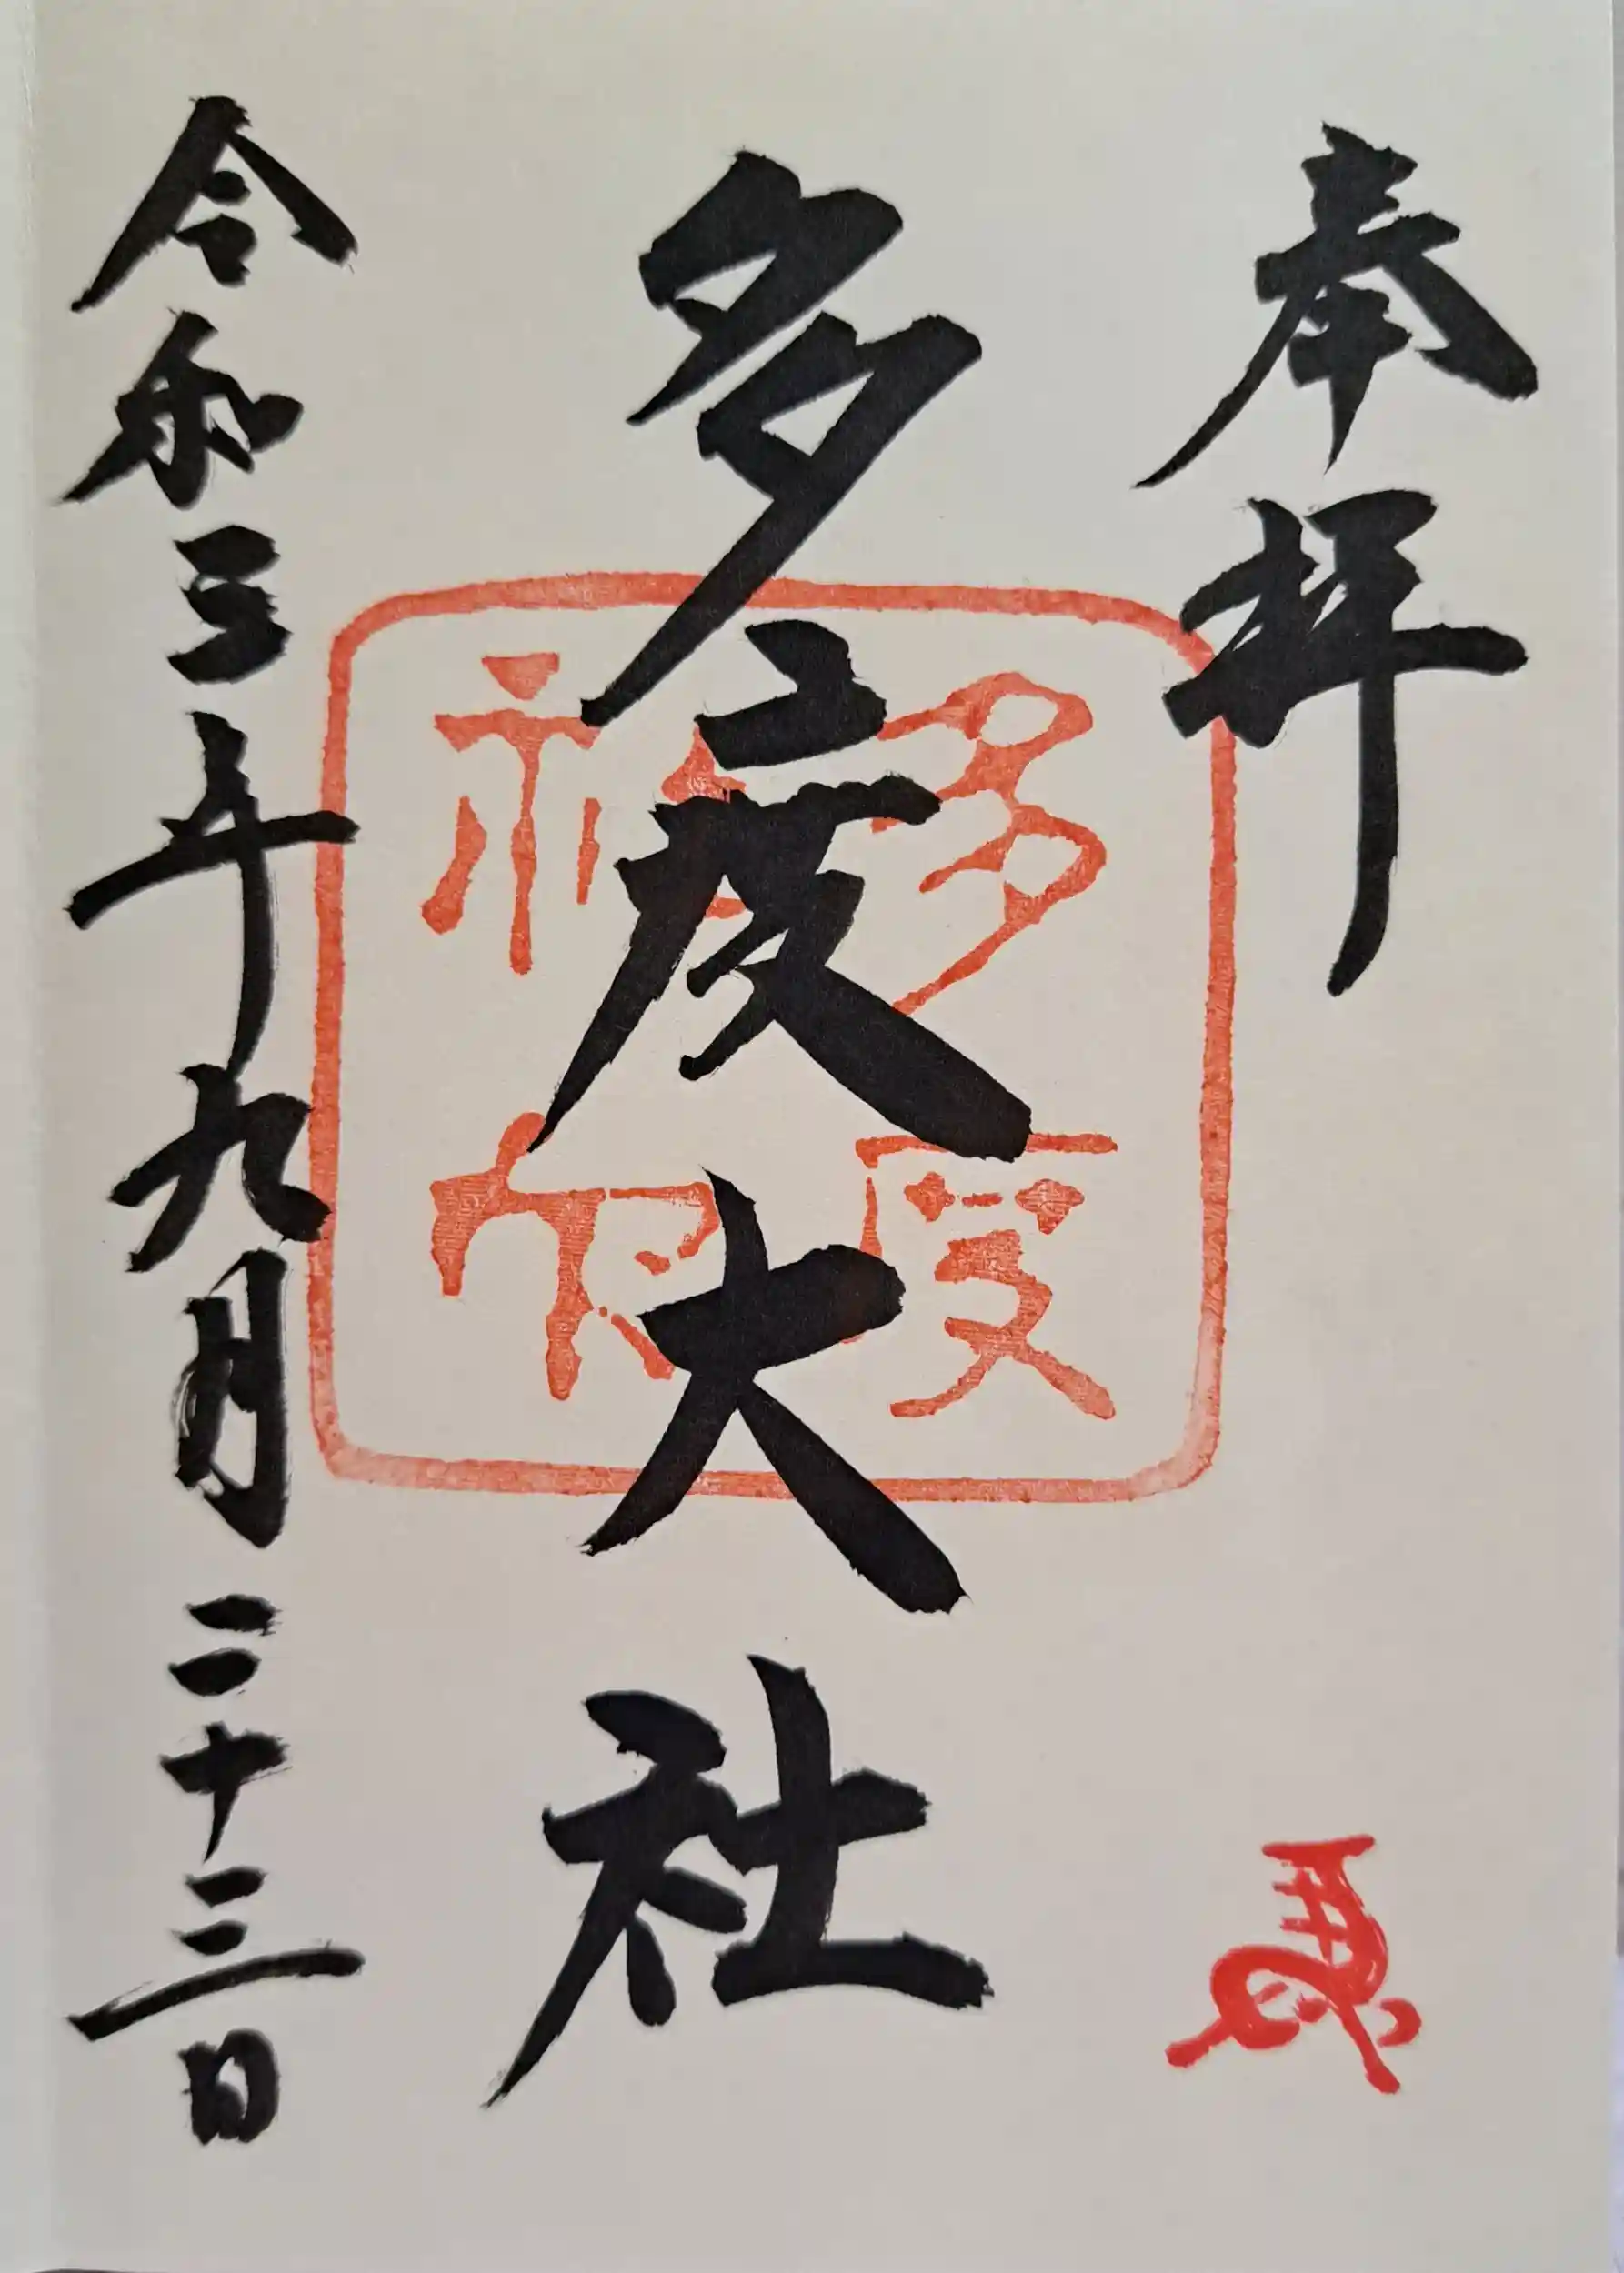 奉拝
多度大社
多度神社
令和三年九月二十三日